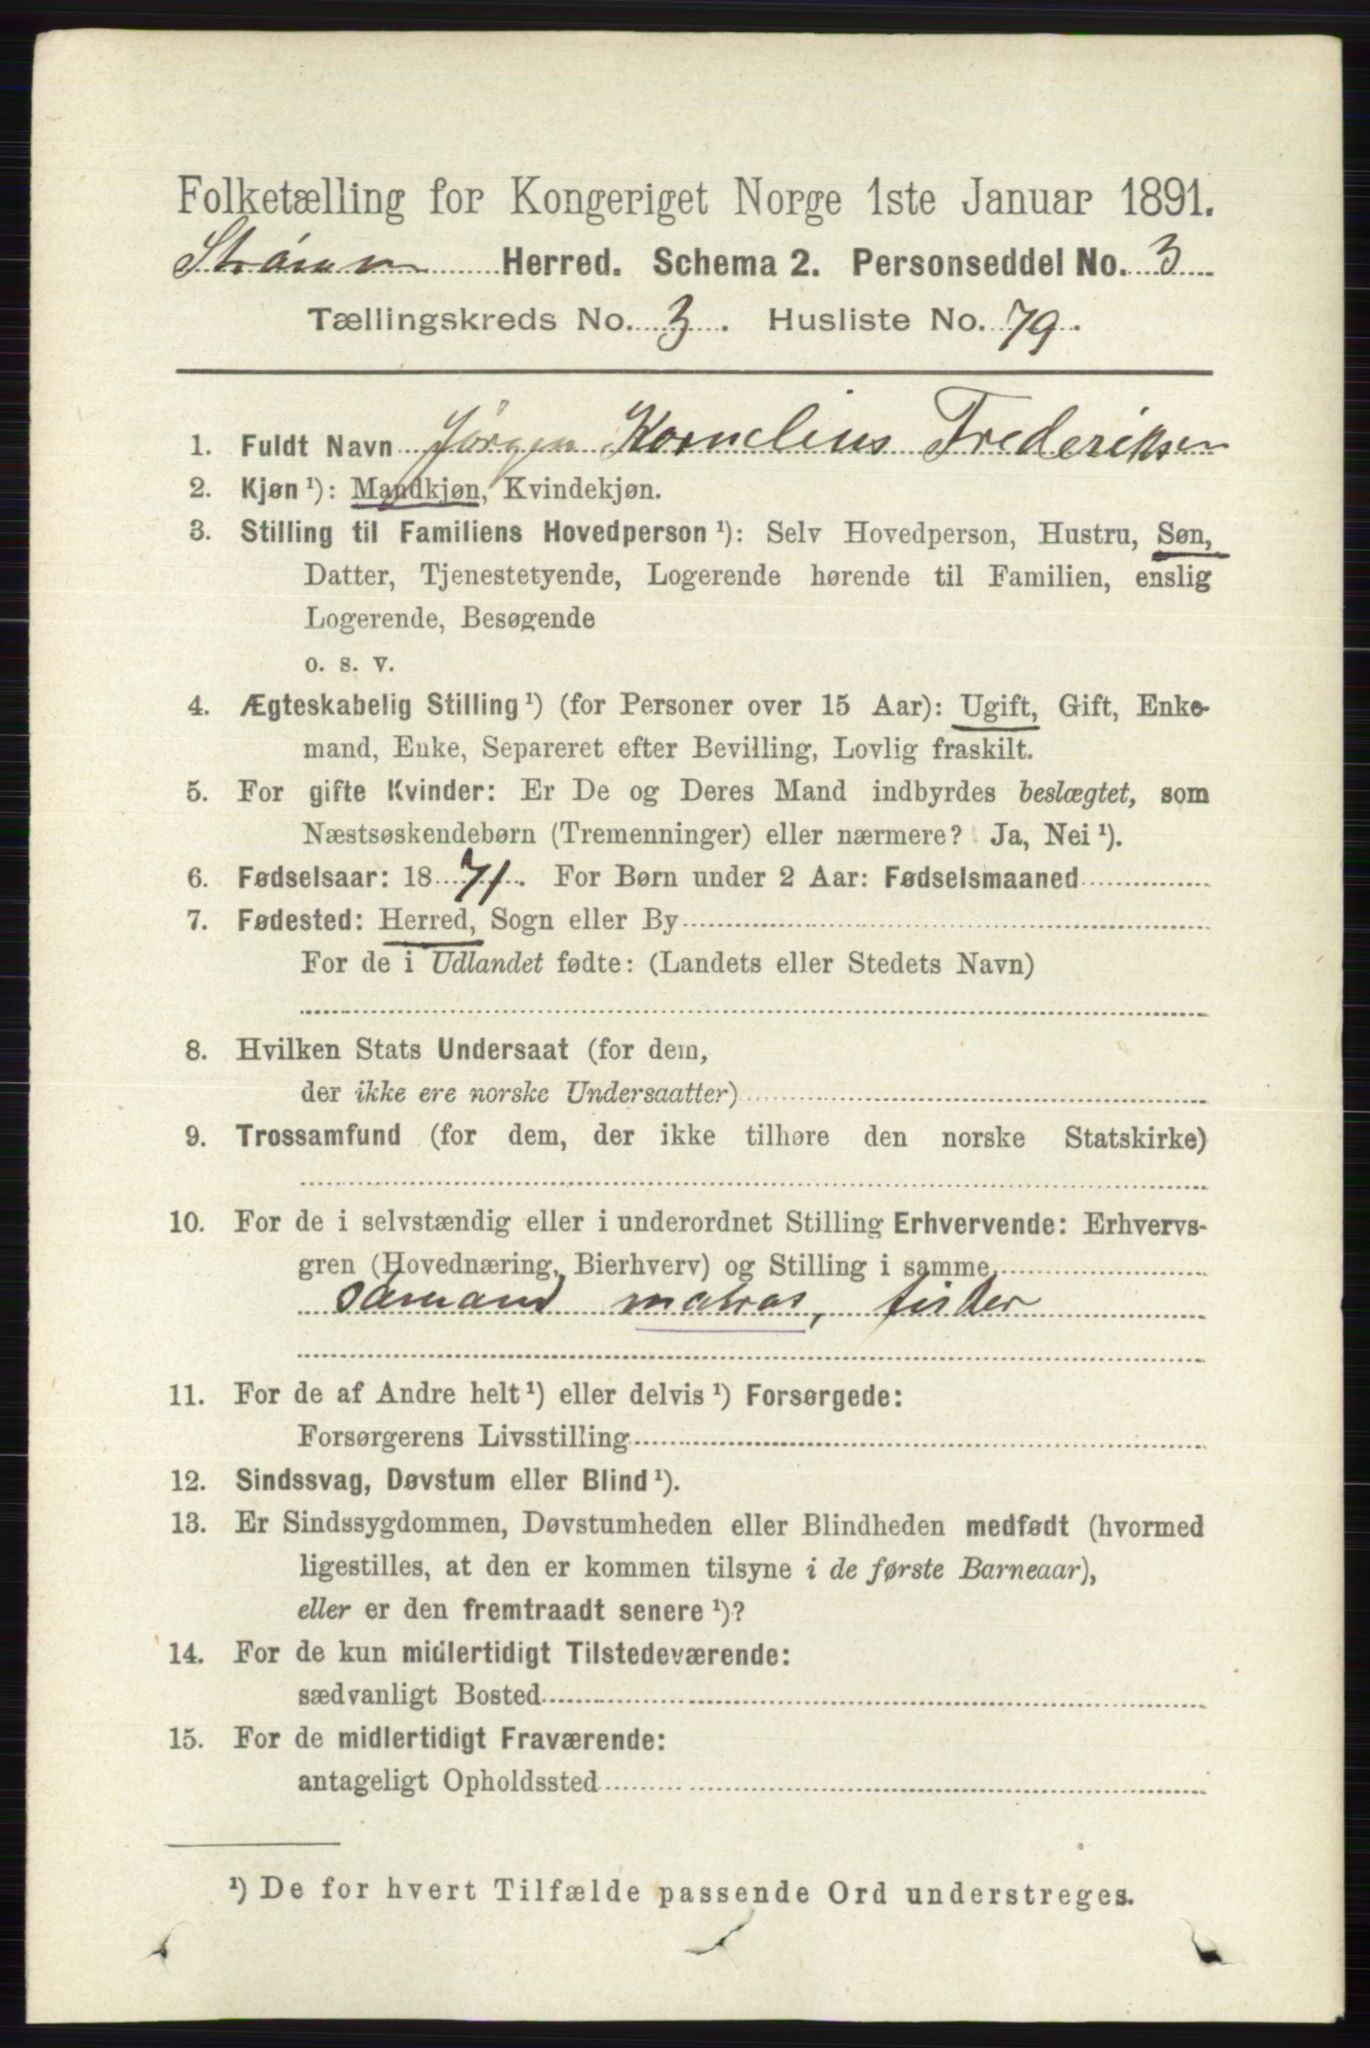 Folketælling for Kongeriget Norge 1ste Januar 1891.
Strømm Herred. Schema 2. Personseddel No. 3
Tællingskreds No. 3. Husliste No. 79.
1. Fuldt Navn Jørgen Kornelius Frederiksen
2. Kjøn ¹): Mandkjøn, Kvindekjøn.
3. Stilling til Familiens Hovedperson ¹): Selv Hovedperson, Hustru, Søn,
Datter, Tjenestetyende, Logerende hørende til Familien, enslig
Logerende, Besøgende
o. s. v.
4. Ægteskabelig Stilling ¹) (for Personer over 15 Aar): Ugift, Gift, Enke-
mand, Enke, Separeret efter Bevilling, Lovlig fraskilt.
5. For gifte Kvinder: Er De og Deres Mand indbyrdes beslægtet, som
Næstsøskendebørn (Tremenninger) eller nærmere? Ja, Nei ¹).
6. Fødselsaar: 1871. For Børn under 2 Aar: Fødselsmaaned
7. Fødested: Herred, Sogn eller By
For de i Udlandet fødte: (Landets eller Stedets Navn)
8. Hvilken Stats Undersaat (for dem,
der ikke ere norske Undersaatter)
9. Trossamfund (for dem, der ikke tilhøre den norske Statskirke)
10. For de i selvstændig eller i underordnet Stilling Erhvervende: Erhvervs-
gren (Hovednæring, Bierhverv) og Stilling i samme
sømand matros, fisker
11. For de af Andre helt ¹) eller delvis ¹) Forsørgede:
Forsørgerens Livsstilling
12. Sindssvag, Døvstum eller Blind ¹).
13. Er Sindssygdommen, Døvstumheden eller Blindheden medfødt (hvormed
ligestilles, at den er kommen tilsyne i de første Barneaar),
eller er den fremtraadt senere ¹)?
14. For de kun midlertidigt Tilstedeværende:
sædvanligt Bosted
15. For de midlertidigt Fraværende:
antageligt Opholdssted
¹) De for hvert Tilfælde passende Ord understreges.